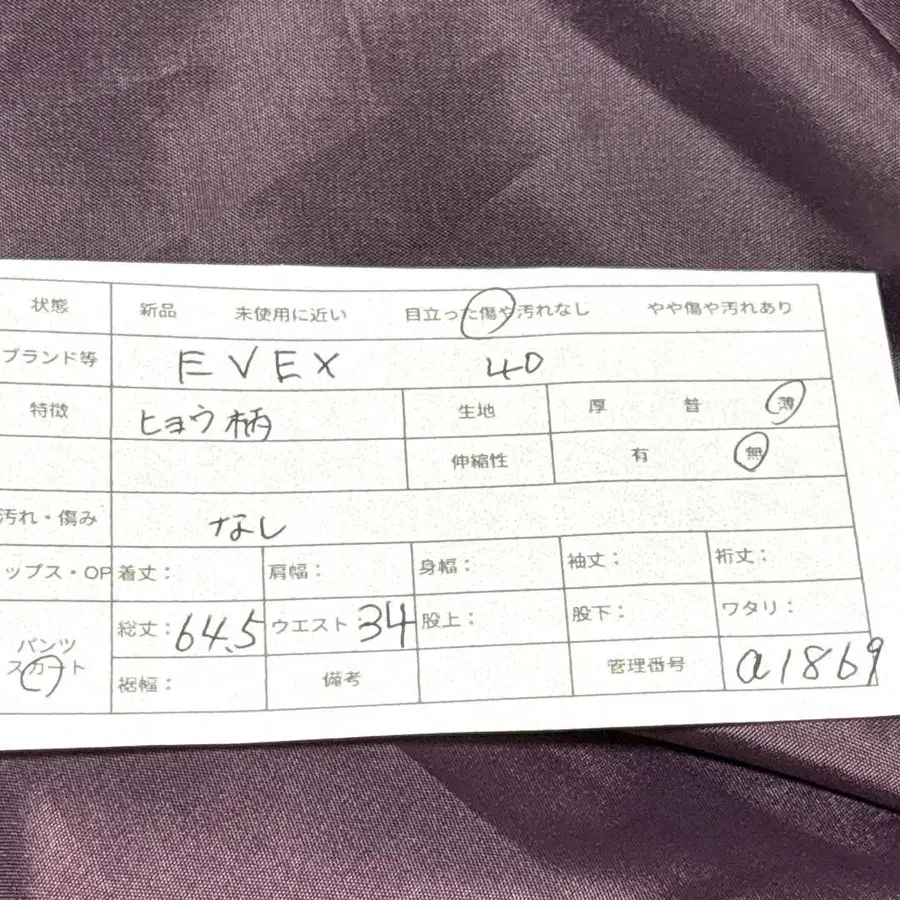 状態 新品 未使用に近い 目立った傷や汚れなし やや傷や汚れあり
ブランド等 EVEX 40
特徴 ヒョウ柄 生地 厚 普 薄
伸縮性 有 無
汚れ・傷み なし
ップス・OP 着丈: 肩幅: 身幅: 袖丈: 裄丈:
パンツ
スカート
総丈: 64.5 ウエスト: 34 股上: 股下: ワタリ:
裾幅: 備考 管理番号 a1869